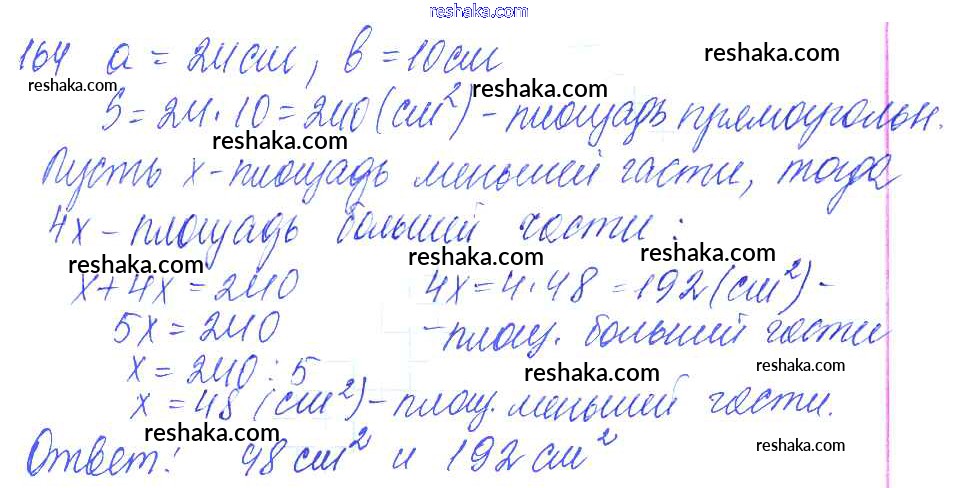 reshaka.com
164 a = 24 см, в = 10 см reshaka.com
reshaka.com reshaka.com
S = 24 · 10 = 240 (см²) - площадь прямоугольн.
reshaka.com reshaka.com
Пусть x - площадь меньшей части, тогда
reshaka.com
4x - площадь большей части.
reshaka.com reshaka.com
x + 4x = 240 4x = 4 · 48 = 192 (см²) -
5x = 240 - площ. большей части
x = 240 : 5 reshaka.com reshaka.com
x = 48 (см²) - площ. меньшей части.
reshaka.com reshaka.com
Ответ: 48 см² и 192 см²